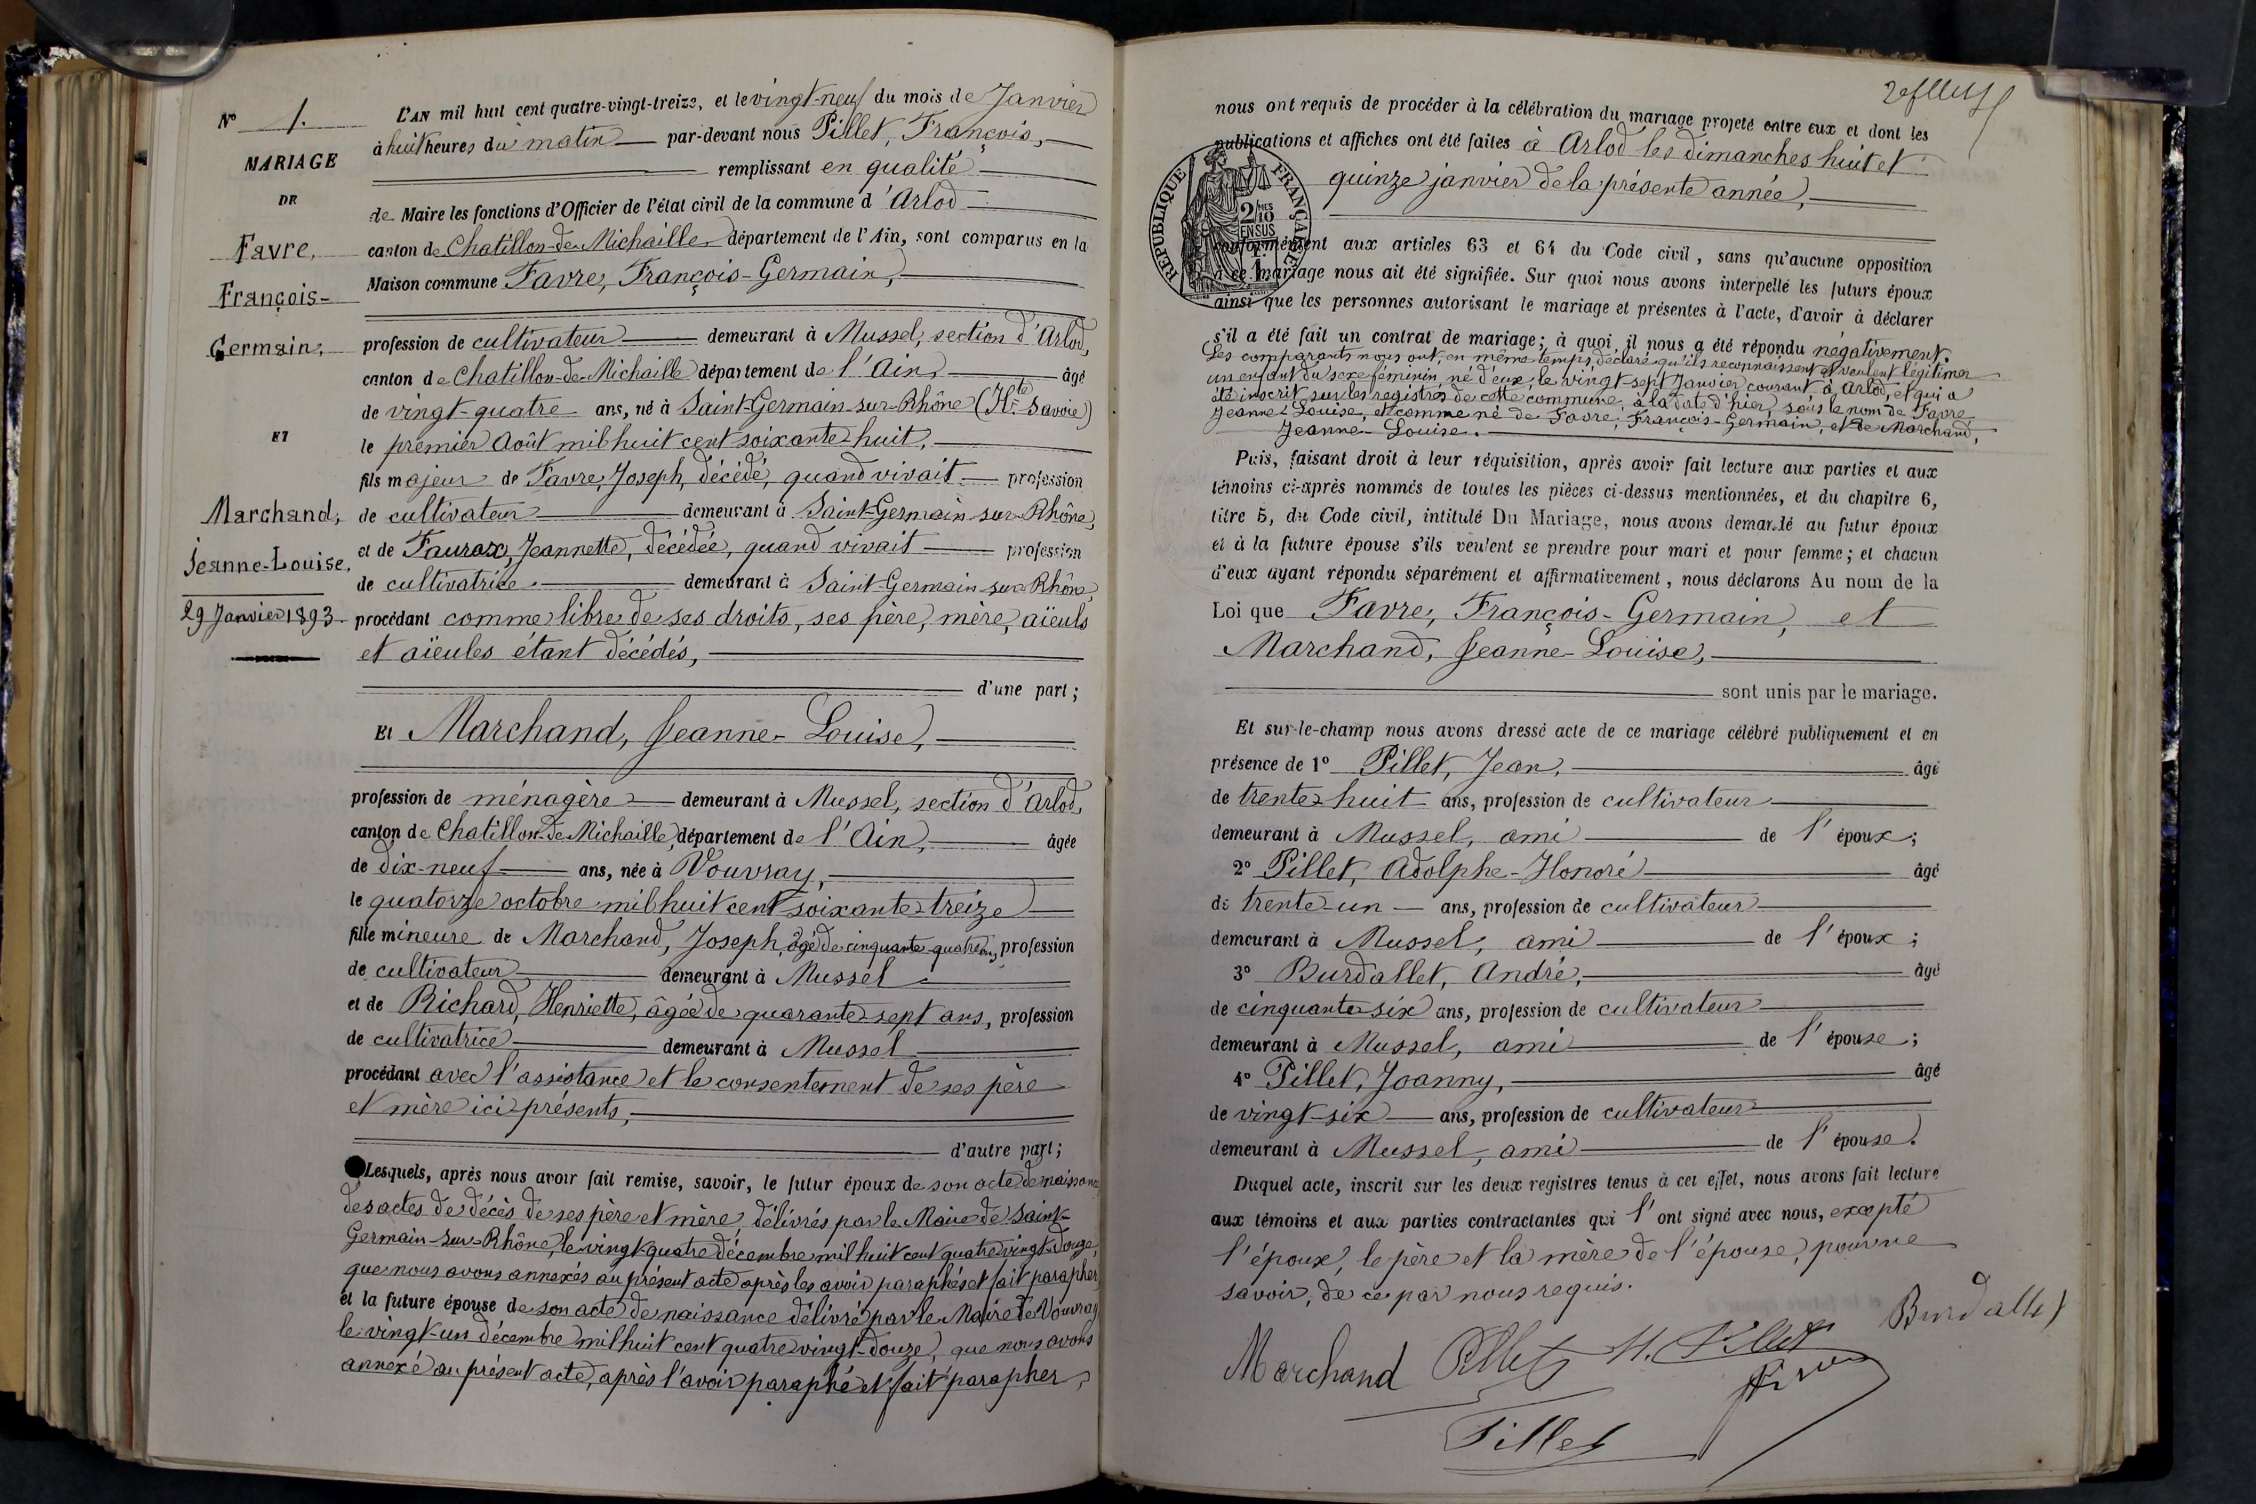 N° 1.
MARIAGE
DE
Favre,
François-
Germain,
ET
Marchand,
Jeanne-Louise,
29 Janvier 1893.
L'AN mil huit cent quatre-vingt-treize, et le vingt-neuf du mois de Janvier
à huit heures du matin par-devant nous Pillet, François,
remplissant en qualité
de Maire les fonctions d'Officier de l'état civil de la commune d'Arlod
canton de Chatillon-de-Michaille département de l'Ain, sont comparus en la
Maison commune Favre, François-Germain,
profession de cultivateur demeurant à Mussel, section d'Arlod,
canton de Chatillon-de-Michaille département de l'Ain, âgé
de vingt-quatre ans, né à Saint-Germain-sur-Rhône (Hte Savoie)
le premier Août mil huit cent soixante-huit,
fils majeur de Favre, Joseph, décédé, quand vivait profession
de cultivateur demeurant à Saint-Germain-sur-Rhône,
et de Faurax, Jeannette, décédée, quand vivait profession
de cultivatrice demeurant à Saint-Germain-sur-Rhône,
procédant comme libre de ses droits, ses père, mère, aïeuls
et aïeules étant décédés,
d'une part;
Et Marchand, Jeanne-Louise,
profession de ménagère demeurant à Mussel, section d'Arlod,
canton de Chatillon-de-Michaille, département de l'Ain, âgée
de dix-neuf ans, née à Vouvray,
le quatorze octobre mil huit cent soixante-treize
fille mineure de Marchand, Joseph, âgé de cinquante-quatre ans, profession
de cultivateur demeurant à Mussel
et de Richard, Henriette, âgée de quarante-sept ans, profession
de cultivatrice demeurant à Mussel
procédant avec l'assistance et le consentement de ses père
et mère ici présents,
d'autre part;
Lesquels, après nous avoir fait remise, savoir, le futur époux de son acte de naissance
des actes de décès de ses père et mère, délivrés par le Maire de Saint-
Germain-sur-Rhône, le vingt-quatre décembre mil huit cent quatre vingt-douze,
que nous avons annexés au présent acte après les avoir paraphés et fait parapher,
et la future épouse de son acte de naissance délivré par le Maire de Vouvray
le vingt-un décembre mil huit cent quatre vingt-douze, que nous avons
annexé au présent acte, après l'avoir paraphé et fait parapher,
nous ont requis de procéder à la célébration du mariage projeté entre eux et dont les
publications et affiches ont été faites à Arlod les dimanches huit et
quinze janvier de la présente année,
RÉPUBLIQUE FRANÇAISE
2/10 MES EN SUS
conformément aux articles 63 et 64 du Code civil, sans qu'aucune opposition
à ce mariage nous ait été signifiée. Sur quoi nous avons interpellé les futurs époux
ainsi que les personnes autorisant le mariage et présentes à l'acte, d'avoir à déclarer
s'il a été fait un contrat de mariage; à quoi il nous a été répondu négativement.
Les comparants nous ont, en même temps, déclaré qu'ils reconnaissent et veulent légitimer
un enfant du sexe féminin, né d'eux, le vingt-sept Janvier courant à Arlod, et qui a
été inscrit sur les registres de cette commune, à la date d'hier, sous le nom de Favre
Jeanne-Louise, et comme né de Favre, François-Germain, et de Marchand,
Jeanne-Louise.
Puis, faisant droit à leur réquisition, après avoir fait lecture aux parties et aux
témoins ci-après nommés de toutes les pièces ci-dessus mentionnées, et du chapitre 6,
titre 5, du Code civil, intitulé Du Mariage, nous avons demandé au futur époux
et à la future épouse s'ils veulent se prendre pour mari et pour femme; et chacun
d'eux ayant répondu séparément et affirmativement, nous déclarons Au nom de la
Loi que Favre, François-Germain, et
Marchand, Jeanne-Louise,
sont unis par le mariage.
Et sur-le-champ nous avons dressé acte de ce mariage célébré publiquement et en
présence de 1° Pillet, Jean, âgé
de trente-huit ans, profession de cultivateur
demeurant à Mussel, ami de l'époux;
2° Pillet, Adolphe-Honoré âgé
de trente-un ans, profession de cultivateur
demeurant à Mussel, ami de l'époux;
3° Burdallet, André, âgé
de cinquante-six ans, profession de cultivateur
demeurant à Mussel, ami de l'épouse;
4° Pillet, Joanny, âgé
de vingt-six ans, profession de cultivateur
demeurant à Mussel, ami de l'épouse.
Duquel acte, inscrit sur les deux registres tenus à cet effet, nous avons fait lecture
aux témoins et aux parties contractantes qui l'ont signé avec nous, excepté
l'époux, le père et la mère de l'épouse, pour ne
savoir, de ce par nous requis.
Burdallet
Marchand Pillet H. Pillet
Pillet